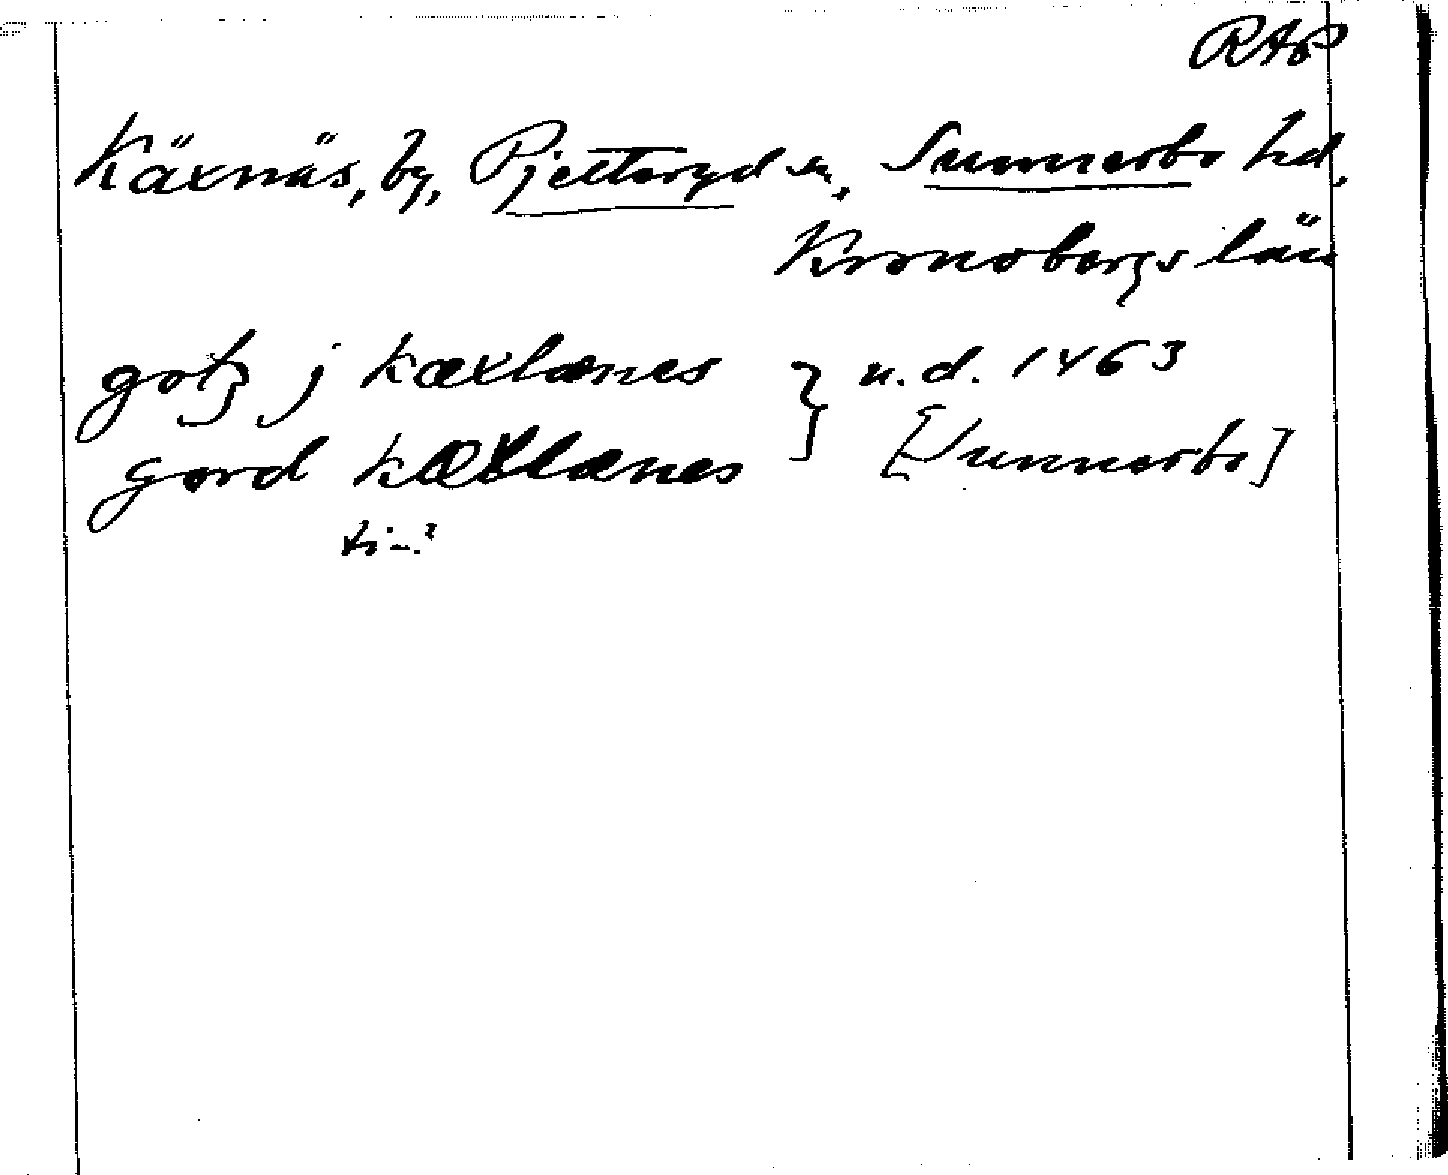 RAP
Käxnäs, by, Pjetteryd sn, Sunnerbo hd,
Kronobergs län
gotz j kæxlænes } u.d. 1463
gord kæxlænes [Sunnerbo]